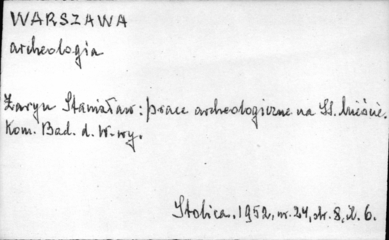 WARSZAWA
archeologia
Żaryn Stanisław: prace archeologiczne na St. Mieście.
Kom. Bad. d. W-wy.
Stolica, 1952, nr. 24, str. 8, il. 6.